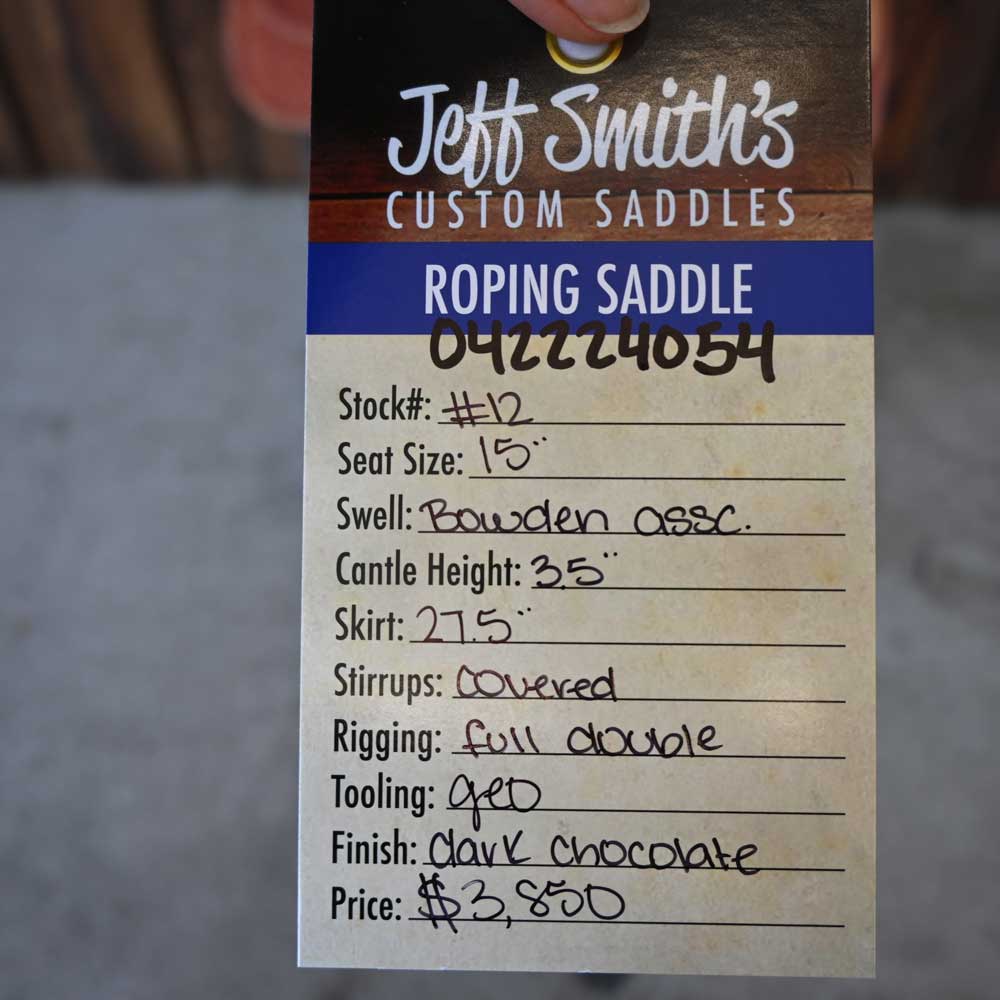 Jeff Smith's
CUSTOM SADDLES
ROPING SADDLE
042224054
Stock#: #12
Seat Size: 15"
Swell: Bowden assc.
Cantle Height: 3.5"
Skirt: 27.5"
Stirrups: covered
Rigging: full double
Tooling: geo
Finish: dark chocolate
Price: $3,850